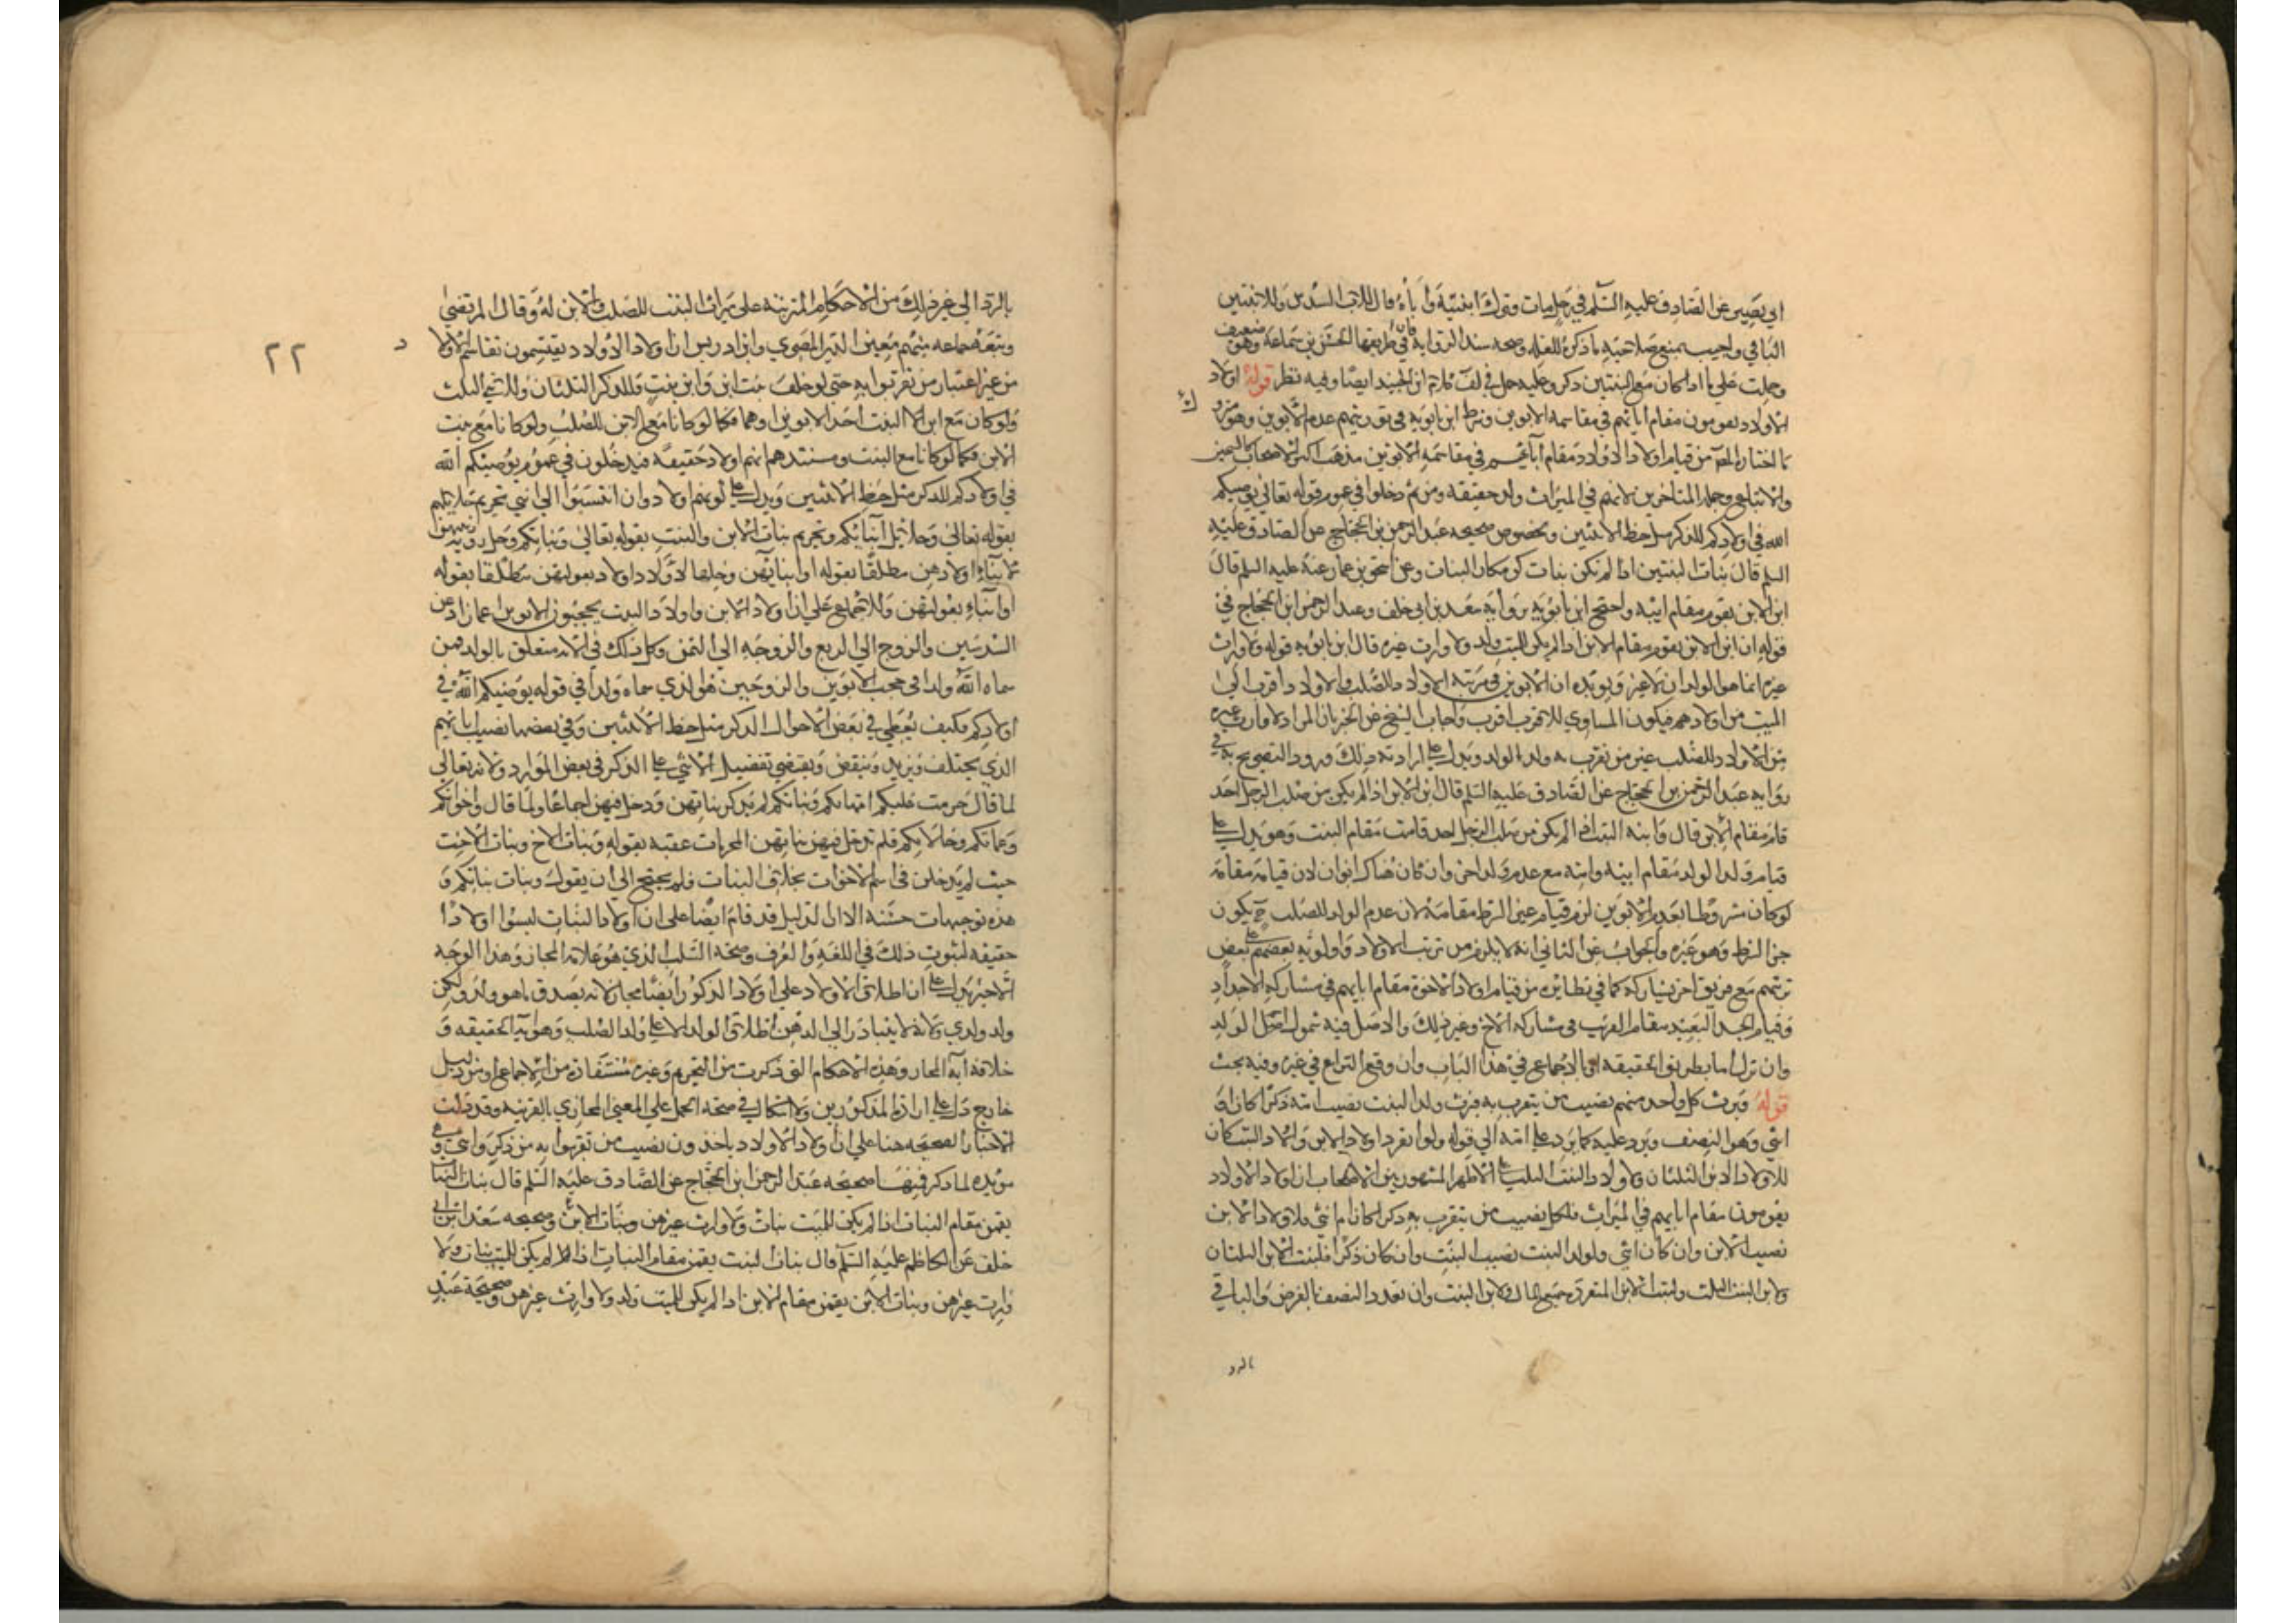 ابي بصير عن الصادق عليه السلم في رجل مات وترك ابنتيه واباه قال للاب السدس وللابنتين
الباقي واجيب بمنع صلاحيته ما ذكره للعلة وصحة سند الرواية فان في طريقها الحسن بن سماعة وهو ضعيف
وحملت على ما اذا كان مع البنتين ذكر وعليه حمل في لف كلام ابن الجنيد ايضا وفيه نظر قوله اولاد
الاولاد يقومون مقام ابائهم في مقاسمة الابوين وشرط ابن بابويه في توريثهم عدم الابوين وهو متروك
ما اختاره المص من قيام اولاد الاولاد مقام آبائهم في مقاسمة الابوين مذهب اكثر الاصحاب كالشيخين
والاتباع وجملة المتاخرين لانهم في الميراث ولد حقيقة ومن ثم دخلوا في عموم قوله تعالى يوصيكم
الله في اولادكم للذكر مثل حظ الانثيين وبخصوص صحيحه عبد الرحمن بن الحجاج عن الصادق عليه
السلم قال بنات البنتين اذا لم تكن بنات كن مكان البنات وعن اسحق بن عمار عنه عليه السلم قال
ابن الابن يقوم مقام ابيه واحتج ابن بابويه برواية سعد بن ابي خلف وعبد الرحمن ابن الحجاج في
قوله ان ابن الابن يقوم مقام الابن اذا لم يكن للميت ولد ولا وارث غيره قال ابن بابويه قوله ولا وارث
غيره انما هو الوالدان لا غير ويؤيده ان الابوين في مرتبة الاولاد للصلب والاولاد اقرب الى
الميت من اولادهم فيكون المساوي للاقرب اقرب واجاب الشيخ عن الخبر بان المراد لا وارث غيره
من الاولاد للصلب غير من تقرب به ولد الولد ويدل على ارادته ذلك ورود التصريح به في
رواية عبد الرحمن بن الحجاج عن الصادق عليه السلم قال ابن الابن اذا لم يكن من صلب الرجل احد
قام مقام الابن قال وابنة البنت اذا لم يكن من صلب الرجل احد قامت مقام البنت وهو يدل على
قيام ولد الولد مقام ابيه وامه مع عدم ولد اخر وان كان هناك ابوان لان قيامه مقامه
لو كان مشروطا بعدم الابوين لزم قيام غير الشرط مقامه لان عدم الولد للصلب ح يكون
جزء الشرط وهو غيره والجواب عن الثاني انه لا يلزم من ترتب الاولاد واولويه بعضهم على بعض
ترتبهم مع فريق اخر يشاركه كما في نظايره من قيام اولاد الاخوة مقام ابايهم في مشاركه الاجداد
وقيام الجد البعيد مقام القريب في مشاركه الاخ وغير ذلك والاصل فيه شمول اصل الولد
وان نزل اما بطريق الحقيقه او بالاجماع في هذا الباب وان وقع النزاع في غيره وفيه بحث
قوله ويرث كل واحد منهم نصيب من يتقرب به فيرث ولد البنت نصيب امه ذكرا كان او
انثى وهو النصف ويرد عليه كما يرد على امه الى قوله ولو انفرد اولاد الابن واولاد البنت كان
للاولاد الابن الثلثان ولاولاد البنت الثلث على الاظهر المشهور بين الاصحاب ان اولاد الاولاد
يقومون مقام ابايهم في الميراث فلكل نصيب من يتقرب به ذكرا كان ام انثى فلاولاد الابن
نصيب الابن وان كان انثى ولولد البنت نصيب البنت وان كان ذكرا فلبنت الابن الثلثان
ولابن البنت الثلث ولبنت الابن المنفرق جميع المال ولابن البنت وان تعدد النصف بالفرض والباقي
بالرد
٢٢
بالرد الى غير ذلك من الاحكام المترتبة على ميراث البنت للصلب والابن له وقال المرتضى
وتبعه جماعه منهم معين الدين المصري وابن ادريس ان اولاد الاولاد يقتسمون تقاسم الاولاد
من غير اعتبار من تقربوا به حتى لو خلف بنت ابن وابن بنت فللذكر الثلثان وللانثى الثلث
ولو كان مع ابن البنت احد الابوين او هما فكما لو كانا مع الابن للصلب ولو كانا مع بنت
الابن فكما لو كانا مع البنت ومستندهم انهم اولاد حقيقه فيدخلون في عموم يوصيكم الله
في اولادكم للذكر مثل حظ الانثيين ويدل على كونهم اولاد وان انتسبوا الى انثى تحريم حلايلهم
بقوله تعالى وحلائل ابنائكم وتحريم بنات الابن والبنت بقوله تعالى وبناتكم وحل رؤية زينتهن
لابناء اولادهن مطلقا بقوله او ابنائهن وحلها لاولاد اولاد بعولتهن مطلقا بقوله
او ابناء بعولتهن وللاجماع على ان اولاد الابن واولاد البنت يحجبون الابوين عما زاد عن
السدسين والزوج الى الربع والزوجه الى الثمن وكل ذلك في الاية متعلق بالولد فمن
سماه الله ولدا في حجب الابوين والزوجين هو الذي سماه ولدا في قوله يوصيكم الله في
اولادكم فكيف يعطى في بعض الاحوال الذكر مثل حظ الانثيين وفي بعضها نصيب ابايهم
الذي يختلف ويزيد وينقص ويقتضي تفضيل الانثى على الذكر في بعض الموارد ولانه تعالى
لما قال حرمت عليكم امهاتكم وبناتكم لم يذكر بناتهن ودخل فيهن اجماعا ولما قال واخواتكم
وعماتكم وخالاتكم فلم تدخل فيهن بناتهن المحرمات عقبه بقوله وبنات الاخ وبنات الاخت
حيث لم يدخلن في اسم الاخوات بخلاف البنات فلم يحتج الى ان يقول وبنات بناتكم و
هذه توجيهات حسنه الا ان الدليل قد قام ايضا على ان اولاد البنات ليسوا اولادا
حقيقه لثبوت ذلك في اللغه والعرف وصحة السلب الذي هو علامه المجاز وهذا الوجه
الاخير يدل على ان اطلاق الاولاد على اولاد الذكور ايضا مجاز لانه يصدق ما هو ولد ولكن
ولد ولدي ولانه لا يتبادر الى الذهن اطلاق الولد الا على ولد الصلب وهو اية الحقيقه و
خلافه آية المجاز وهذه الاحكام التي ذكرت من التحريم وغيره مستفادة من الاجماع او من دليل
خارج دل على ارادة المذكورين ولا اشكال في صحه الحمل على المعنى المجازي بالقرينه وقد دلت
الاخبار الصحيحه هنا على ان اولاد الاولاد ياخذون نصيب من تقربوا به من ذكر وانثى وهي
مؤيده لما ذكر فمنها صحيحه عبد الرحمن ابن الحجاج عن الصادق عليه السلم قال بنات البنات
يقمن مقام البنات اذا لم يكن للميت بنات ولا وارث غيرهن وبنات الابن وصحيحه سعد ابن ابي
خلف عن الكاظم عليه السلم قال بنات البنت يقمن مقام البنات اذا لم يكن للميت بنات ولا
وارث غيرهن وبنات الابن يقمن مقام الابن اذا لم يكن للميت ولد ولا وارث غيرهن وصحيحة عبد